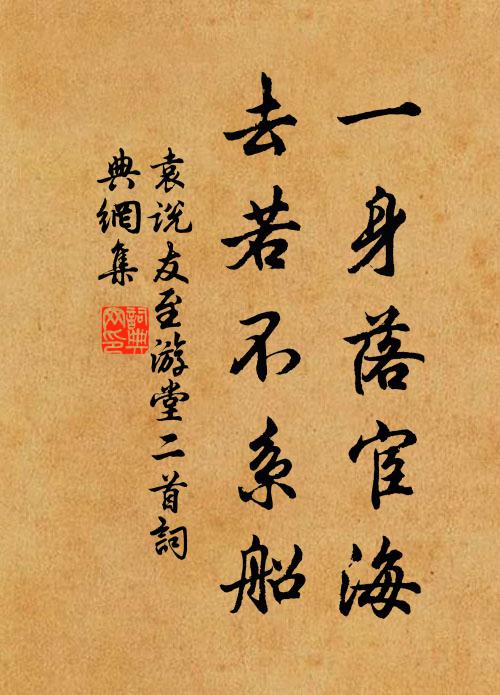 一身落宦海
去若不系船
袁说友至游堂二首詞
典網集
詞典網印